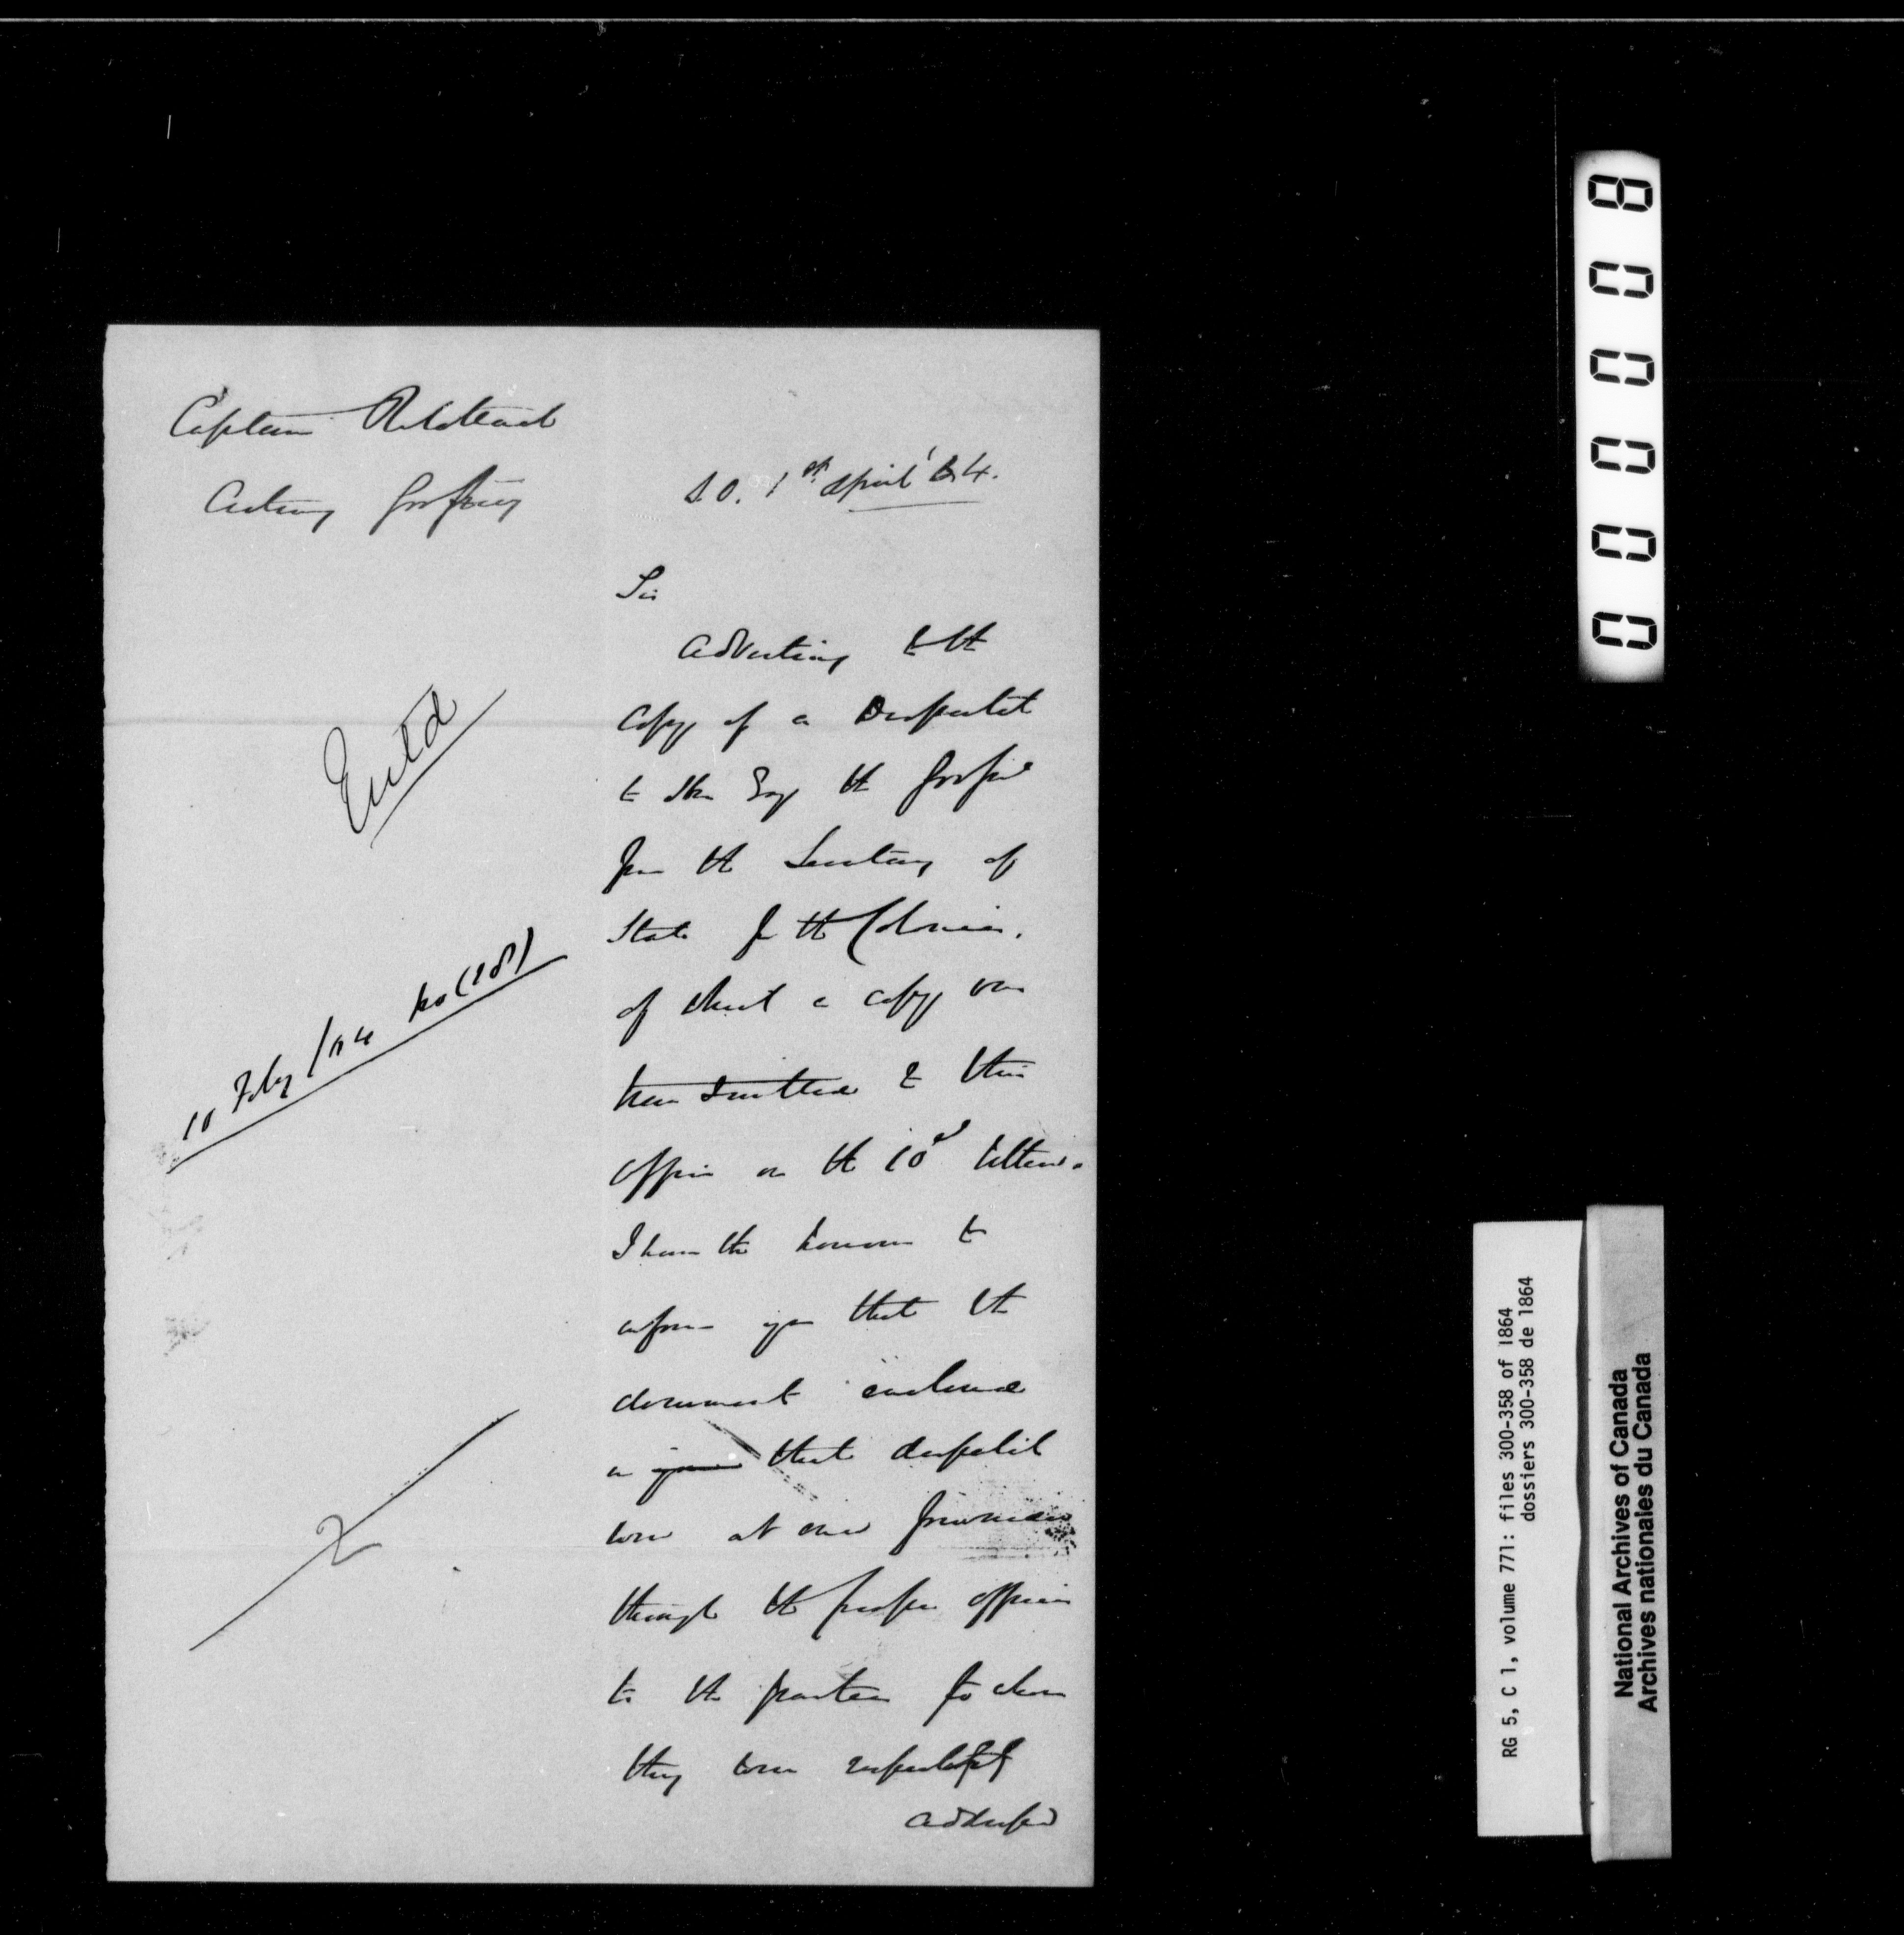 Captain Retallack
Acting Gov Secy
S.O. 1st April '64.
Sir
Adverting to the
Copy of a Despatch
to His Exy the Gov Genl
from the Secretary of
State for the Colonies.
of which a copy was
transmitted to this
Office on the 10th
I have the honour to
inform you that the
document enclosed
in that despatch
were at once
through the proper officer
to the parties to whom
they were respectively
addressed
Entd
10 Feby /64 No (28)
2
000008
RG 5, C 1, volume 771: files 300-358 of 1864
dossiers 300-358 de 1864
National Archives of Canada
Archives nationales du Canada